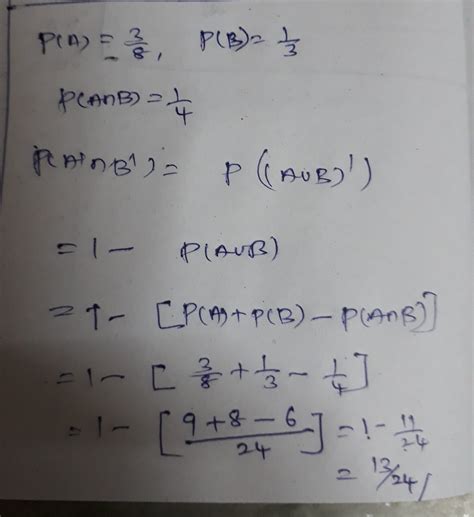 P(A) = 3/8, P(B) = 1/3
P(A∩B) = 1/4
P(A'∩B') = P((A∪B)')
= 1 - P(A∪B)
= 1 - [P(A) + P(B) - P(A∩B)]
= 1 - [3/8 + 1/3 - 1/4]
= 1 - [(9 + 8 - 6)/24] = 1 - 11/24
= 13/24/